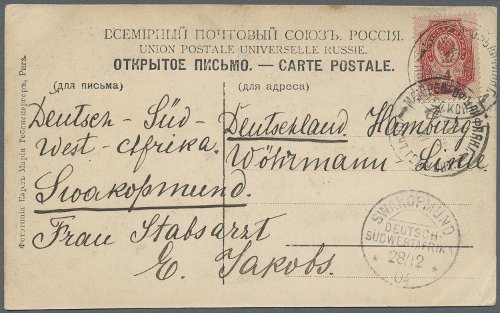 ВСЕМІРНЫЙ ПОЧТОВЫЙ СОЮЗЪ. РОССІЯ.
UNION POSTALE UNIVERSELLE RUSSIE.
ОТКРЫТОЕ ПИСЬМО. — CARTE POSTALE.
(для письма)
(для адреса)
Deutsch-Süd-
West-Afrika.
Swakopmund.
Deutschland. Hamburg
Wöhrmann Linie
Frau Stabsarzt
E. Jakobs.
SWAKOPMUND
DEUTSCH-
SÜDWESTAFRIKA
28/12
04
Фототипія Карлъ Марія Гебенсперберъ, Рига.